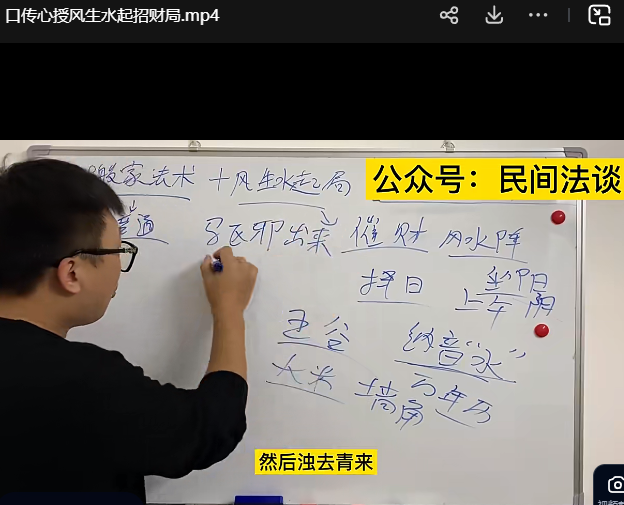 口传心授风生水起招财局.mp4
公众号：民间法谈
搬家法术 十风生水起局
普通 驱邪出来 催财 风水阵
择日
上午 阴
五谷 纳音"水"
大米 墙角 万年历
然后浊去青来